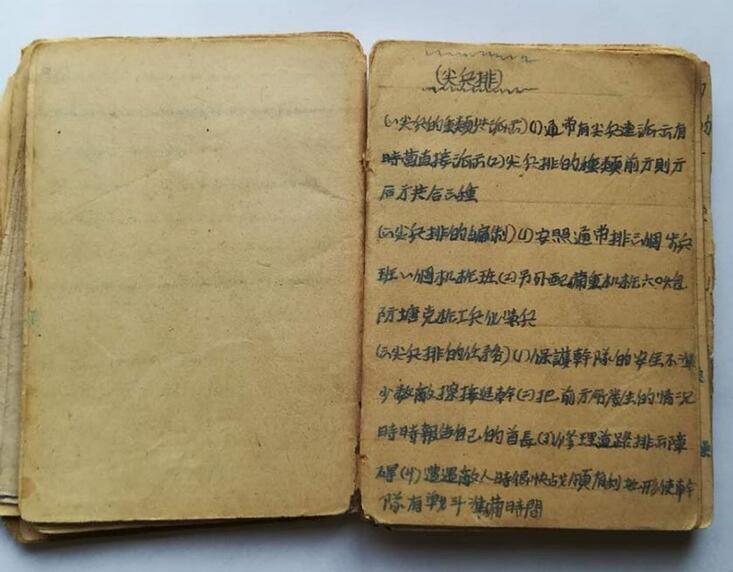 (尖兵排)
(一)尖兵的種類与派出)(1)通常有尖兵連派出有
時营直接派出(2)尖兵排的種類前方側方
后方共合三種
(二)尖兵排的編制)(1)安照通常排三個步兵
班一個机枪班(2)另外配備重机枪六〇炮
防坦克枪工兵化学兵
(三)尖兵排的任務)(1)保護幹隊的安全不準
少数敵探接近幹(2)把前方所發生的情况
時時報告自己的首長(3)修理道路排除障
碍(4)遭遇敵人時很快占領有利地形使幹
隊有戰斗準備時間